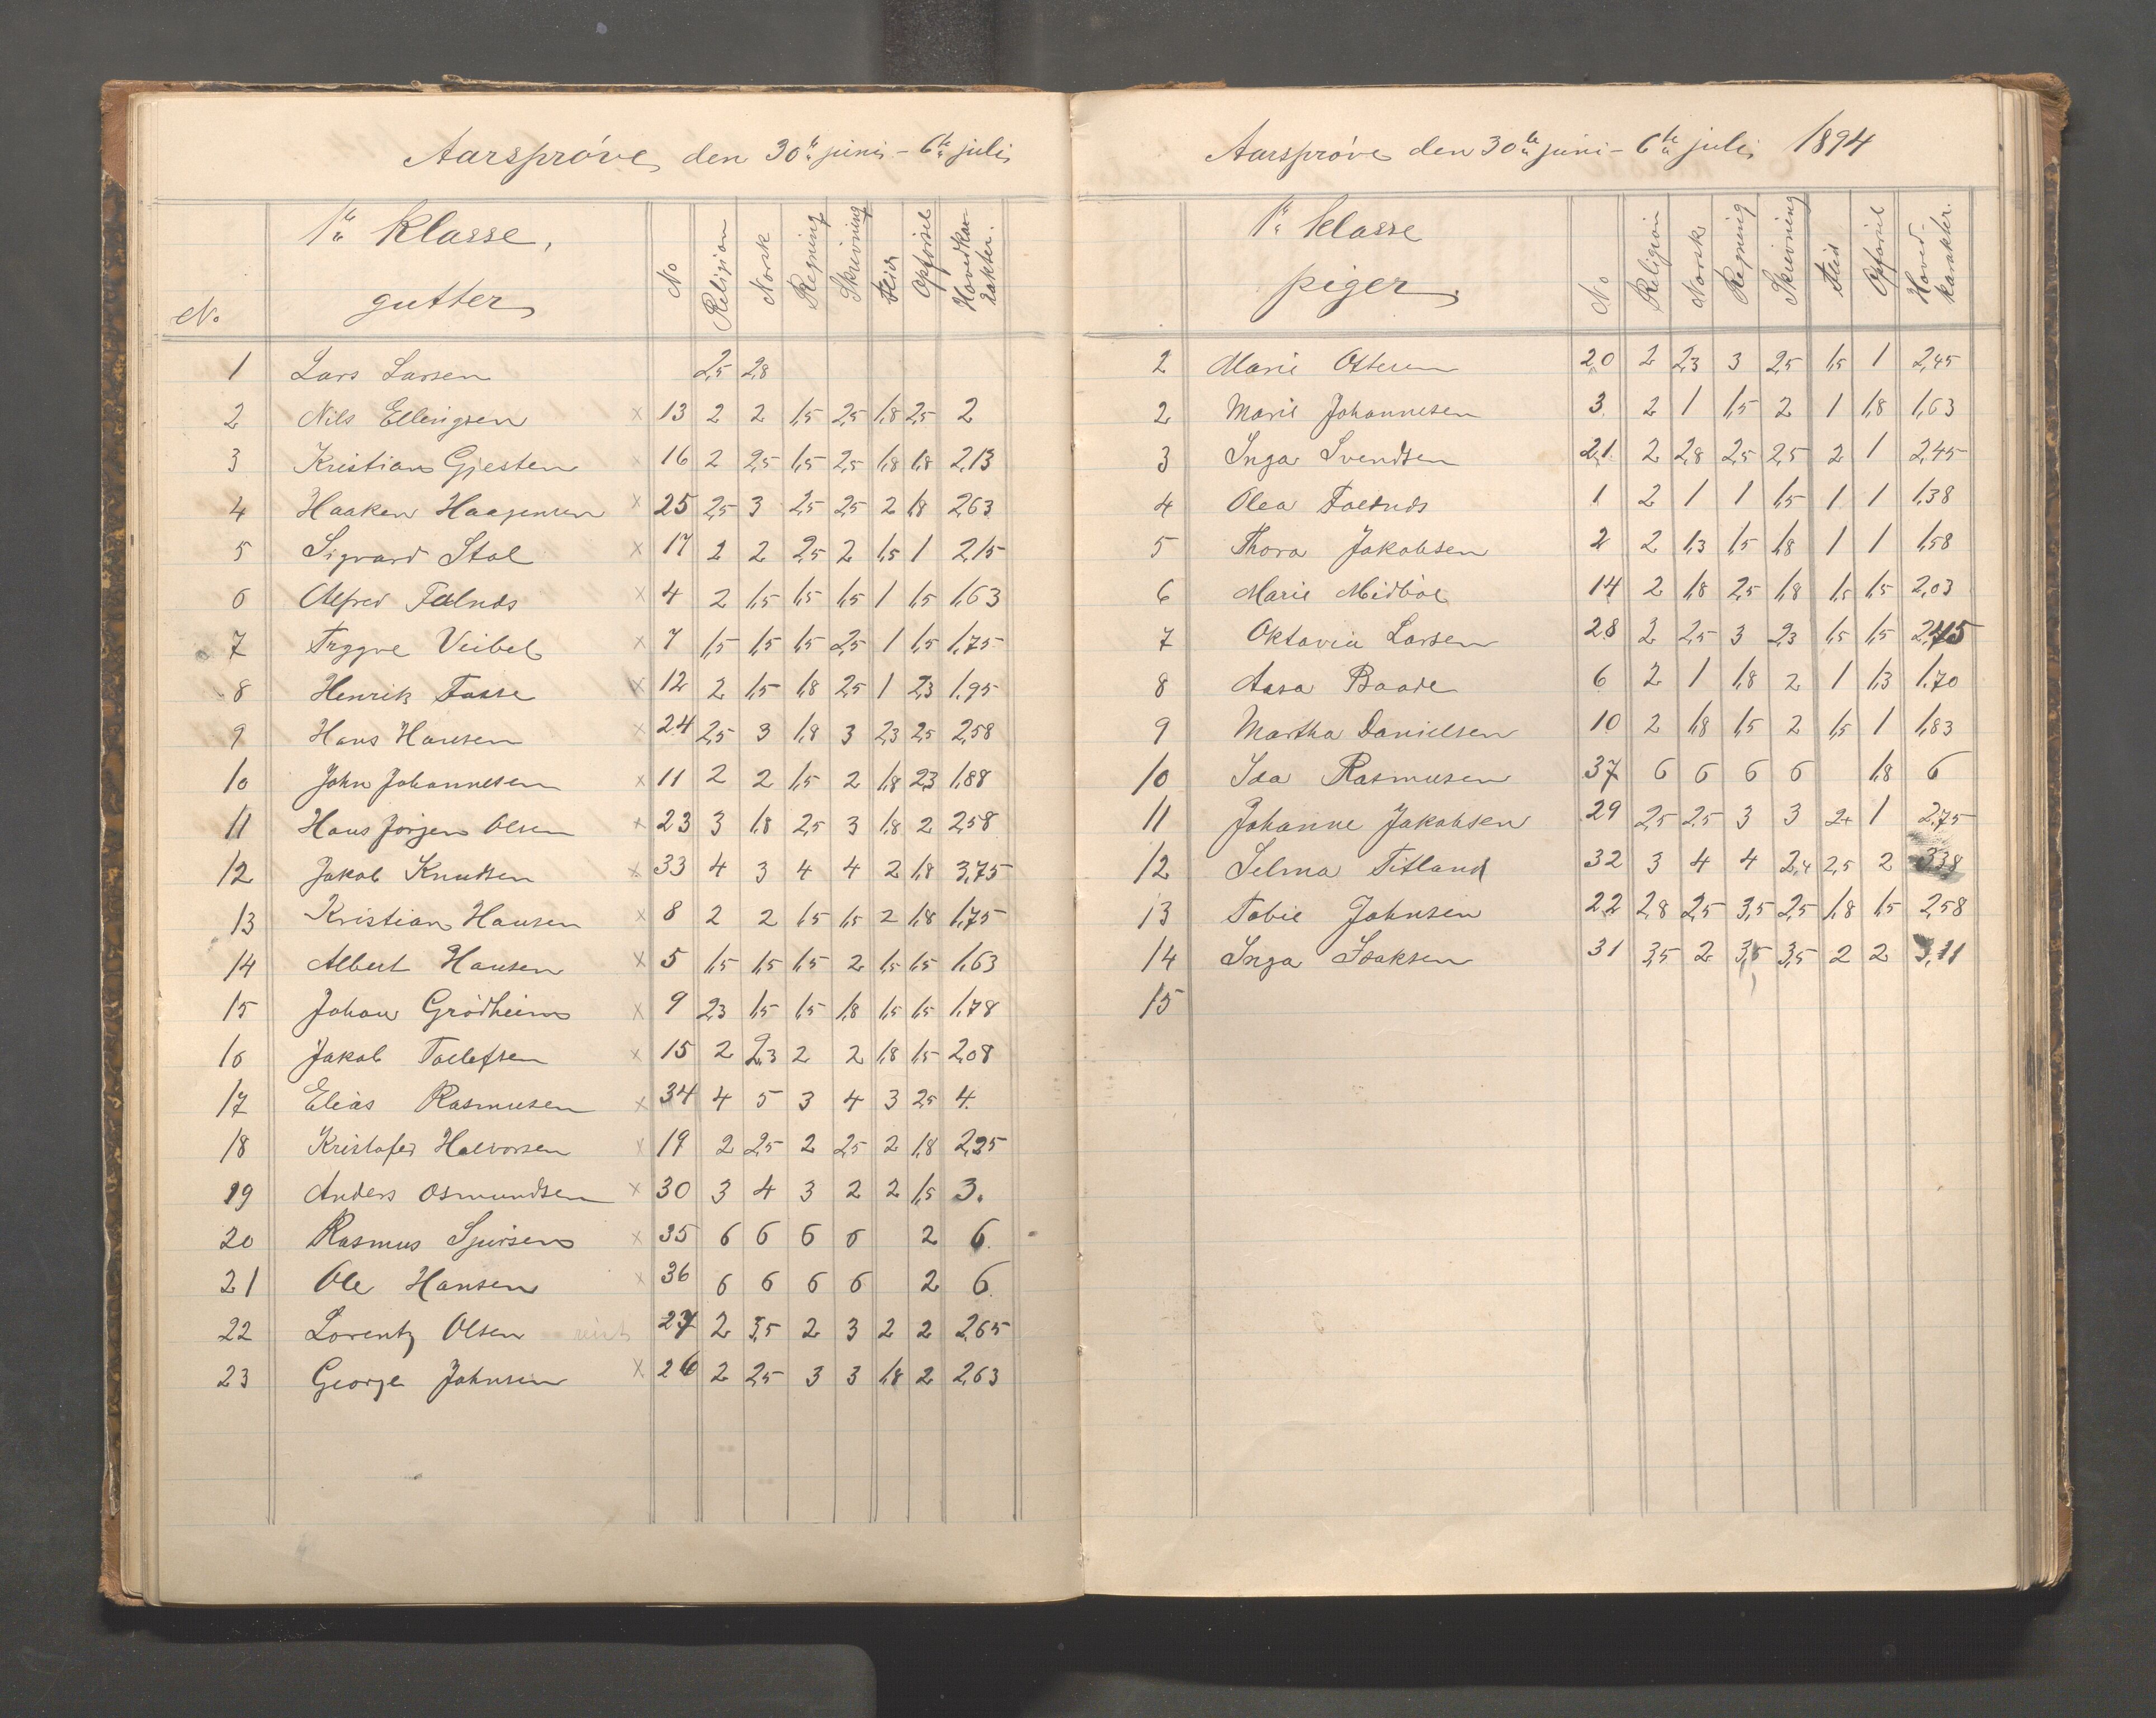 Aarsprøve den 30te juni - 6te juli
1te klasse,
gutter
No No Religion Norsk Regning Skrivning Flid Opførsel Hovedkarakter.
1 Lars Larsen 2,5 2,8
2 Nils Ellingsen x 13 2 2 1,5 2,5 1,8 2,5 2
3 Kristian Gjesten x 16 2 2,5 1,5 2,5 1,8 1,8 2,13
4 Haaken Haagensen x 25 2,5 3 2,5 2,5 2 1,8 2,63
5 Sigvard Stol x 17 2 2 2,5 2 1,5 1 2,15
6 Alfred Falnds x 4 2 1,5 1,5 1,5 1 1,5 1,63
7 Trygve Veibel x 7 1,5 1,5 1,5 2,5 1 1,5 1,75
8 Henrik Fosse x 12 2 1,5 1,8 2,5 1 2,3 1,95
9 Hans Hansen x 24 2,5 3 1,8 3 2,3 2,5 2,58
10 John Johannesen x 11 2 2 1,5 2 1,8 2,3 1,88
11 Hans Jørgen Olsen x 23 3 1,8 2,5 3 1,8 2 2,58
12 Jakob Knudsen x 33 4 3 4 4 2 1,8 3,75
13 Kristian Hansen x 8 2 2 1,5 1,5 2 1,8 1,75
14 Albert Hansen x 5 1,5 1,5 1,5 2 1,5 1,5 1,63
15 Johan Grødheim x 9 2,3 1,5 1,5 1,8 1,5 1,5 1,78
16 Jakob Tollefsen x 15 2 2,3 2 2 1,8 1,5 2,08
17 Elias Rasmusen x 34 4 5 3 4 3 2,5 4.
18 Kristofer Halvorsen x 19 2 2,5 2 2,5 2 1,8 2,25
19 Anders Osmundsen x 30 3 4 3 2 2 1,5 3.
20 Rasmus Sjursen x 35 6 6 6 6 2 6.
21 Ole Hansen x 36 6 6 6 6 2 6.
22 Lorentz Olsen 27 2 3,5 2 3 2 2 2,65
23 George Johnsen x 26 2 2,5 3 3 1,8 2 2,63
Aarsprøve den 30te juni - 6te juli 1894
1te klasse
piger
No Religion Norsk Regning Skrivning Flid Opførsel Hovedkarakter.
2 Marie Ottesen 20 2 2,3 3 2,5 1,5 1 2,45
2 Marie Johannesen 3 2 1 1,5 2 1 1,8 1,63
3 Inga Svendsen 21 2 2,8 2,5 2,5 2 1 2,45
4 Olea Falnds 1 2 1 1 1,5 1 1 1,38
5 Thora Jakobsen 2 2 1,3 1,5 1,8 1 1 1,58
6 Marie Midbøe 14 2 1,8 2,5 1,8 1,5 1,5 2,03
7 Oktavia Larsen 28 2 2,5 3 2,3 1,5 1,5 2,45
8 Aasa Baade 6 2 1 1,8 2 1 1,3 1,70
9 Martha Danielsen 10 2 1,8 1,5 2 1,5 1 1,83
10 Ida Rasmusen 37 6 6 6 6 1,8 6
11 Johanne Jakobsen 29 2,5 2,5 3 3 2+ 1 2,75
12 Selma Titland 32 3 4 4 2,4 2,5 2 3,38
13 Tobie Johnsen 22 2,8 2,5 3,5 2,5 1,8 1,5 2,58
14 Inga Isaksen 31 3,5 2 3,5 3,5 2 2 3,11
15